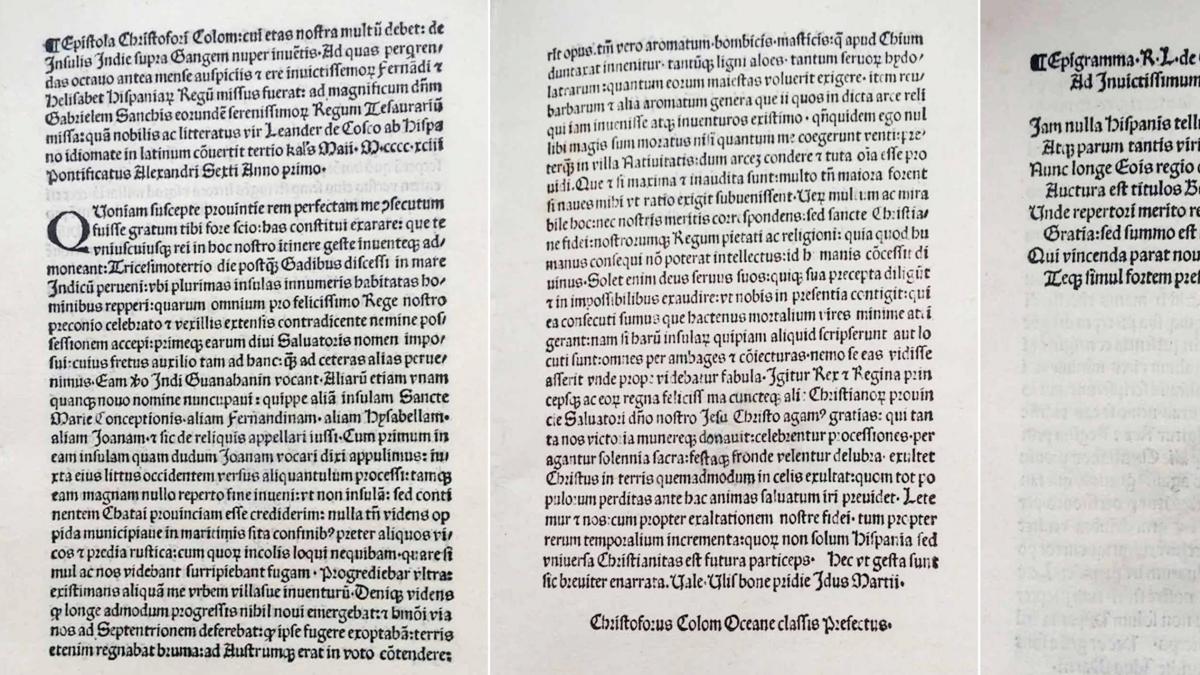 ¶Epistola Christofori Colom: cui etas nostra multū debet: de
Insulis Indie supra Gangem nuper inuētis·Ad quas perqren⸗
das octauo antea mense auspiciis ⁊ ere inuictissemoꝝ Fernādi ⁊
Helisabet Hispaniaꝝ Regū missus fuerat: ad magnificum dñm
Gabrielem Sanchis eorundē serenissimoꝝ Regum Tesaurariū
missa: quā nobilis ac litteratus vir Leander de Cosco ab Hispa
no idiomate in latinum cōuertit tertio kaľs Maii·M·cccc·xciii
Pontificatus Alexandri Sexti Anno primo·
QUoniam suscepte prouintie rem perfectam me ꝯsecutum
fuisse gratum tibi fore scio: has constitui exarare: que te
vniuscuiusqꝫ rei in hoc nostro itinere geste inuenteqꝫ ad⸗
moneant: Tricesimotertio die postqꝫ Gadibus discessi in mare
Indicū perueni: vbi plurimas insulas innumeris habitatas ho⸗
minibus repperi: quarum omnium pro felicissimo Rege nostro
preconio celebrato ⁊ vexillis extensis contradicente nemine pos⸗
sessionem accepi: primeqꝫ earum diui Saluatoris nomen impo⸗
sui: cuius fretus auxilio tam ad hanc: qꝫ ad ceteras alias perue⸗
nimus·Eam ꝟo Indi Guanahanin vocant·Aliarū etiam vnam
quanqꝫ nouo nomine nuncupaui: quippe aliā insulam Sancte
Marie Conceptionis·aliam Fernandinam·aliam Hysabellam·
aliam Joanam·⁊ sic de reliquis appellari iussi·Cum primum in
eam insulam quam dudum Joanam vocari dixi appulimus: iu⸗
xta eius littus occidentem versus aliquantulum processi: tamqꝫ
eam magnam nullo reperto fine inueni: vt non insulā: sed conti
nentem Chatai prouinciam esse crediderim: nulla tñ videns op
pida municipiaue in maritimis sita confinibꝰ preter aliquos vi⸗
cos ⁊ predia rustica: cum quoꝝ incolis loqui nequibam·quare si
mul ac nos videbant surripiebant fugam·Progrediebar vltra:
existimans aliquā me vrbem villasue inuenturū·Deniqꝫ videns
ꝙ longe admodum progressis nihil noui emergebat: ⁊ hmōi via
nos ad Septentrionem deferebat: ꝙ ipse fugere exoptabā: terris
etenim regnabat bruma: ad Austrumqꝫ erat in voto cōtendere:
rit opus·tm̄ vero aromatum·bombicis·masticis: q̄ apud Chium
duntaxat inuenitur·tantūqꝫ ligni aloes·tantum seruoꝝ hydo⸗
latrarum: quantum eorum maiestas voluerit exigere·item reu⸗
barbarum ⁊ aliā aromatum genera que ii quos in dicta arce reli
qui iam inuenisse atqꝫ inuenturos existimo·qñquidem ego nul
libi magis sum moratus nisi quantum me coegerunt venti: pre⸗
terqꝫ in villa Natiuitatis: dum arcem condere ⁊ tuta oīa esse pro
uidi·Que ⁊ si maxima ⁊ inaudita sunt: multo tñ maiora forent
si naues mihi vt ratio exigit subuenissent·Veꝝ multum ac mira
bile hoc: nec nostris meritis correspondens: sed sancte Christia⸗
ne fidei: nostrorumqꝫ Regum pietati ac religioni: quia quod hu
manus consequi nō poterat intellectus: id h manis cōcessit di
uinus·Solet enim deus seruus suos: quiqꝫ sua precepta diligūt
⁊ in impossibilibus exaudire: vt nobis in presentia contigit: qui
ea consecuti sumus que hactenus mortalium vires minime atti
gerant: nam si harū insulaꝝ quipiam aliquid scripserunt aut lo
cuti sunt: omnes per ambages ⁊ cōiecturas·nemo se eas vidisse
asserit vnde prope videbatur fabula·Igitur Rex ⁊ Regina prin
cepsqꝫ ac eoꝝ regna feliciss ma cuncteqꝫ ali Christianoꝝ prouin
cie Saluatori dño nostro Jesu Christo agamꝰ gratias: qui tan
ta nos victoria munereqꝫ donauit: celebrentur processiones·per
agantur solennia sacra: festaqꝫ fronde velentur delubra·exultet
Christus in terris quemadmodum in celis exultat: quom tot po
pulorum perditas ante hac animas saluatum iri preuidet·Lete
mur ⁊ nos: cum propter exaltationem nostre fidei·tum propter
rerum temporalium incrementa: quoꝝ non solum Hispania sed
vniuersa Christianitas est futura particeps· Hec vt gesta sunt
sic breuiter enarrata·Vale·Ulisbone pridie Idus Martii·
Christoforus Colom Oceane classis Prefectus·
¶Epigramma·R·L·de
Ad Inuictissimum
Jam nulla Hispanis tell
Atqꝫ parum tantis viri
Nunc longe Eois regio
Auctura est titulos
Unde repertori merito re
Gratia: sed summo est
Qui vincenda parat nou
Teqꝫ simul fortem pre